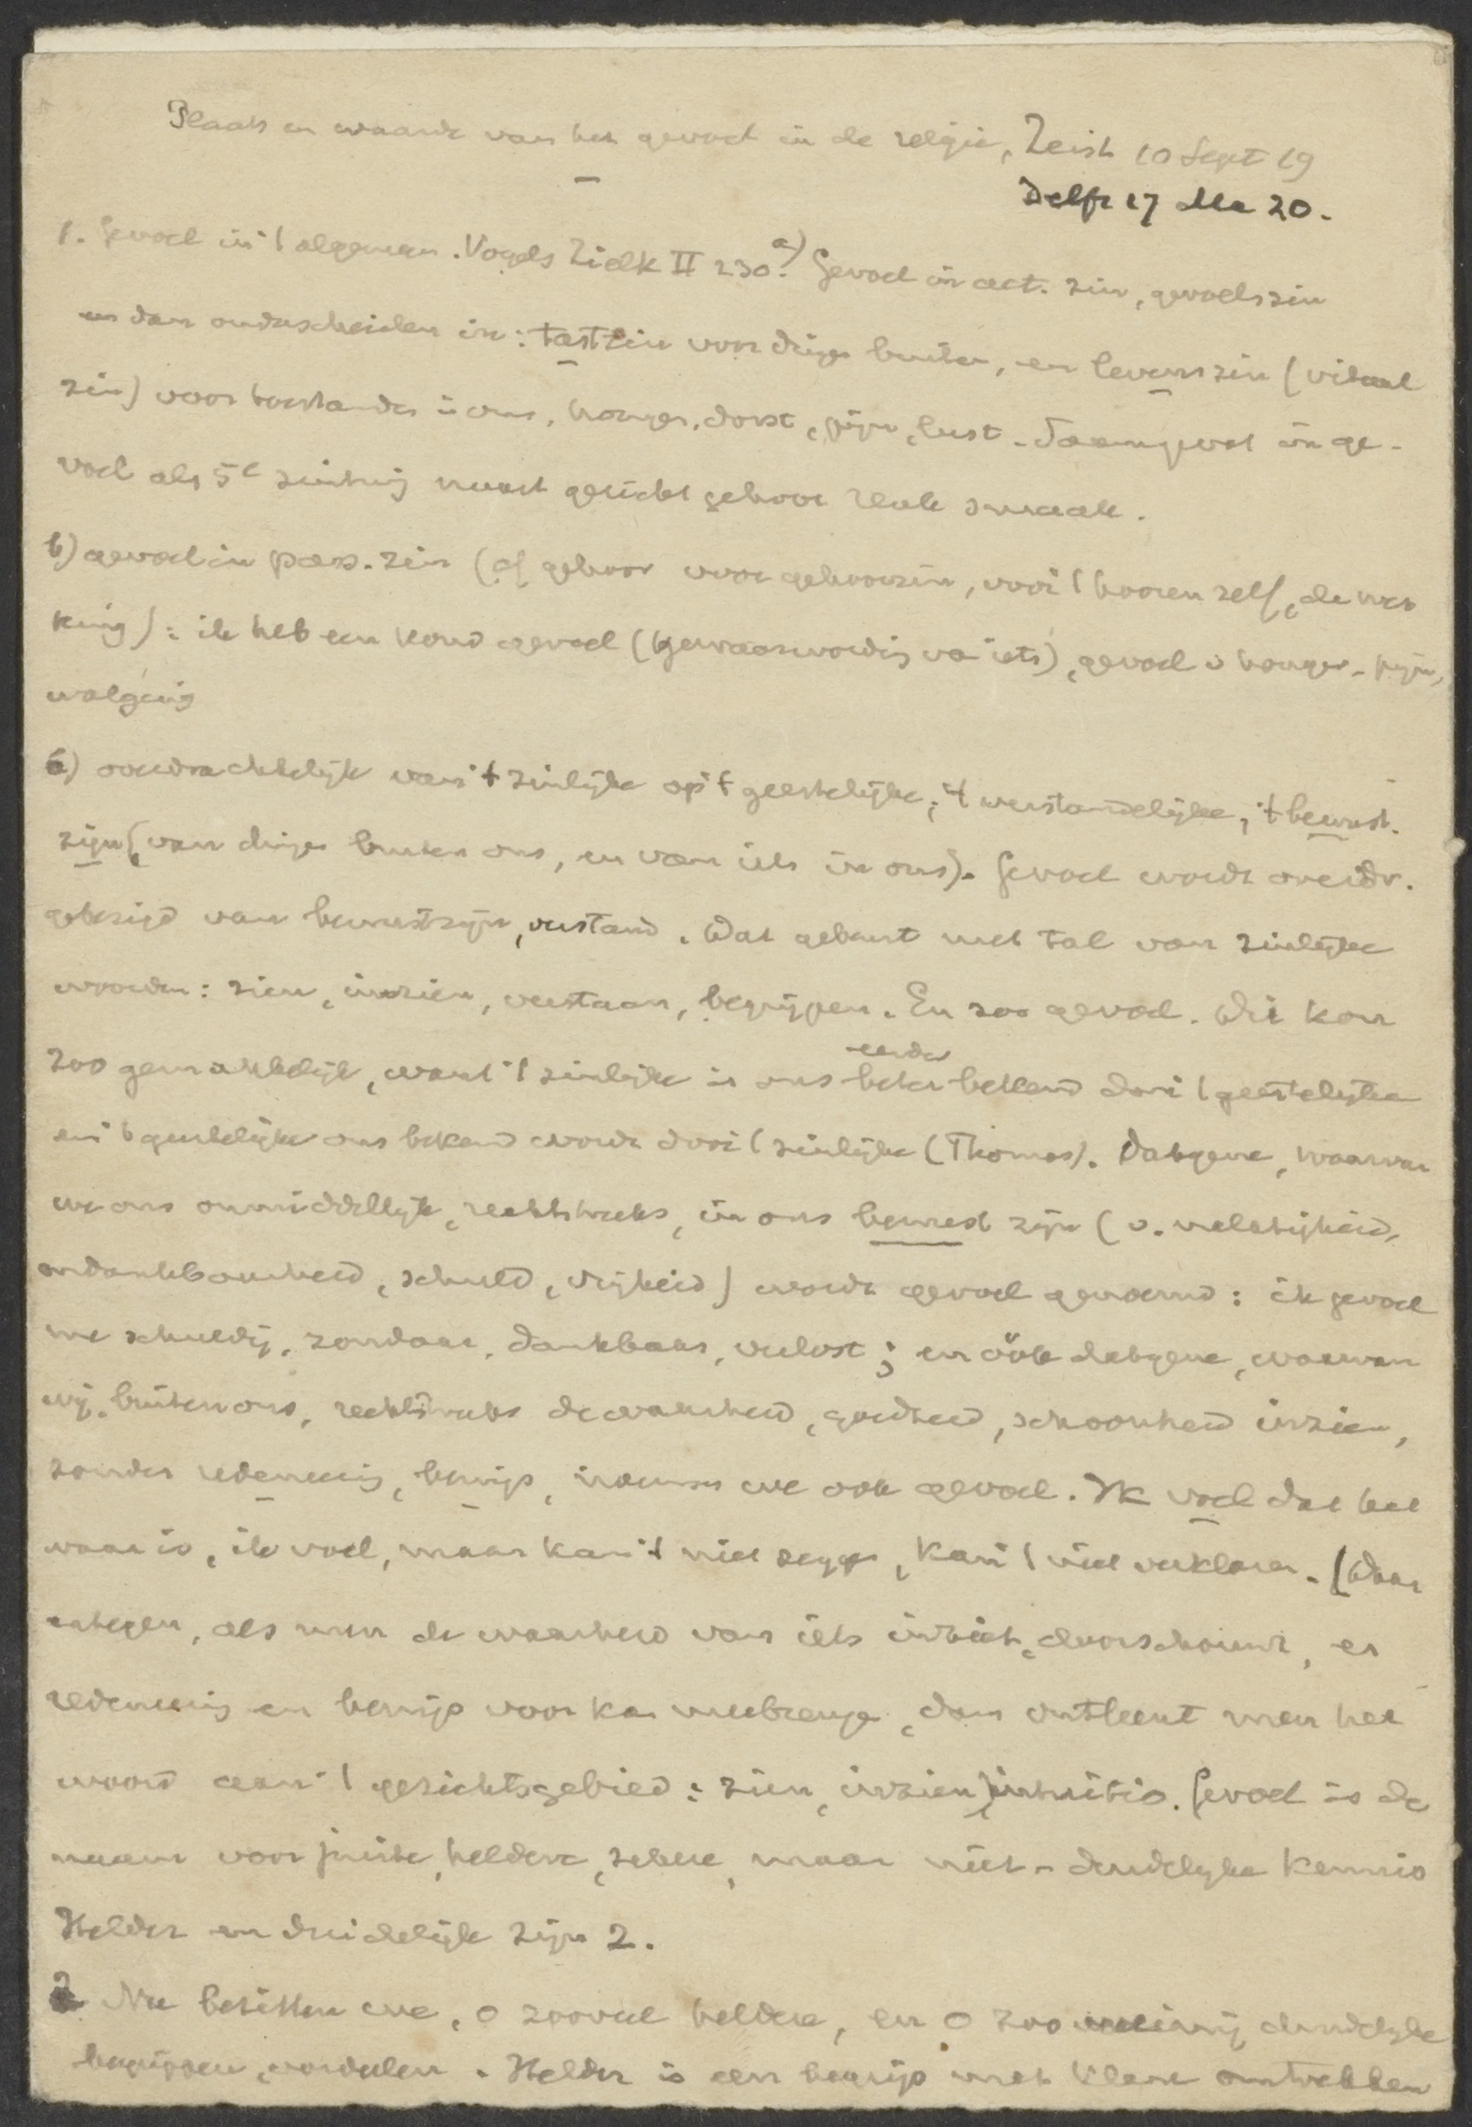 Plaats en waarde van het gevoel in de religie, Zeist 10 Sept 19
Delft 17 Mei 20.
1. Gevoel in 't algemeen. Vogels Zielk II 230. a) Gevoel in act. zin, gevoelszin
en dan onderscheiden in: tastzin voor dingen buiten, en levenszin (vitaal
zin) voor toestanden in ons, honger, dorst, pijn, lust - Saamgevat in ge-
voel als 5e zintuig naast gezicht gehoor reuk smaak.
b) gevoel in pass. zin (cf gehoor voor gehoorzin, voor 't hooren zelf, de wer
king): ik heb een koud gevoel (gewaarwording van iets), gevoel v honger - pijn,
walging
c) overdrachtelijk van 't zinlijke op 't geestelijke, 't verstandelijke, 't bewust-
zijn (van dingen buiten ons, en van iets in ons). Gevoel wordt overdr.
gebezigd van bewustzijn, verstand. Dat gebeurt met tal van zinlijke
woorden: zien, inzien, verstaan, begrijpen. En zoo gevoel. Dit kon
zoo gemakkelijk, want 't zinlijke is ons beter eerder bekend dan 't geestelijke
en 't geestelijke ons bekend wordt door 't zinlijke (Thomas). Datgene, waarvan
we ons onmiddellijk, rechtstreeks, in ons bewust zijn (v. nalatigheid,
ondankbaarheid, schuld, vrijheid) wordt gevoel genoemd: ik gevoel
me schuldig, zondaar, dankbaar, verlost; en óók datgene, waarvan
wij, buiten ons, rechtstreeks de waarheid, goedheid, schoonheid inzien,
zonder redeneering, bewijs, noemen we ook gevoel. Ik voel dat het
waar is, ik voel, maar kan 't niet zeggen, kan 't niet verklaren. (Daar
entegen, als men de waarheid van iets inziet, doorschouwt, er
redeneering en bewijs voor kan meebrengen, dan ontleent men het
woord aan 't gezichtsgebied: zien, inzien, intuitie. Gevoel is de
naam voor juiste, heldere, zekere, maar niet-duidelijke kennis
Helder en duidelijk zijn 2.
2 Nu bezitten we, o zooveel heldere, en o zoo weinig duidelijke
begrippen, oordeelen. Helder is een begrip met klare omtrekken